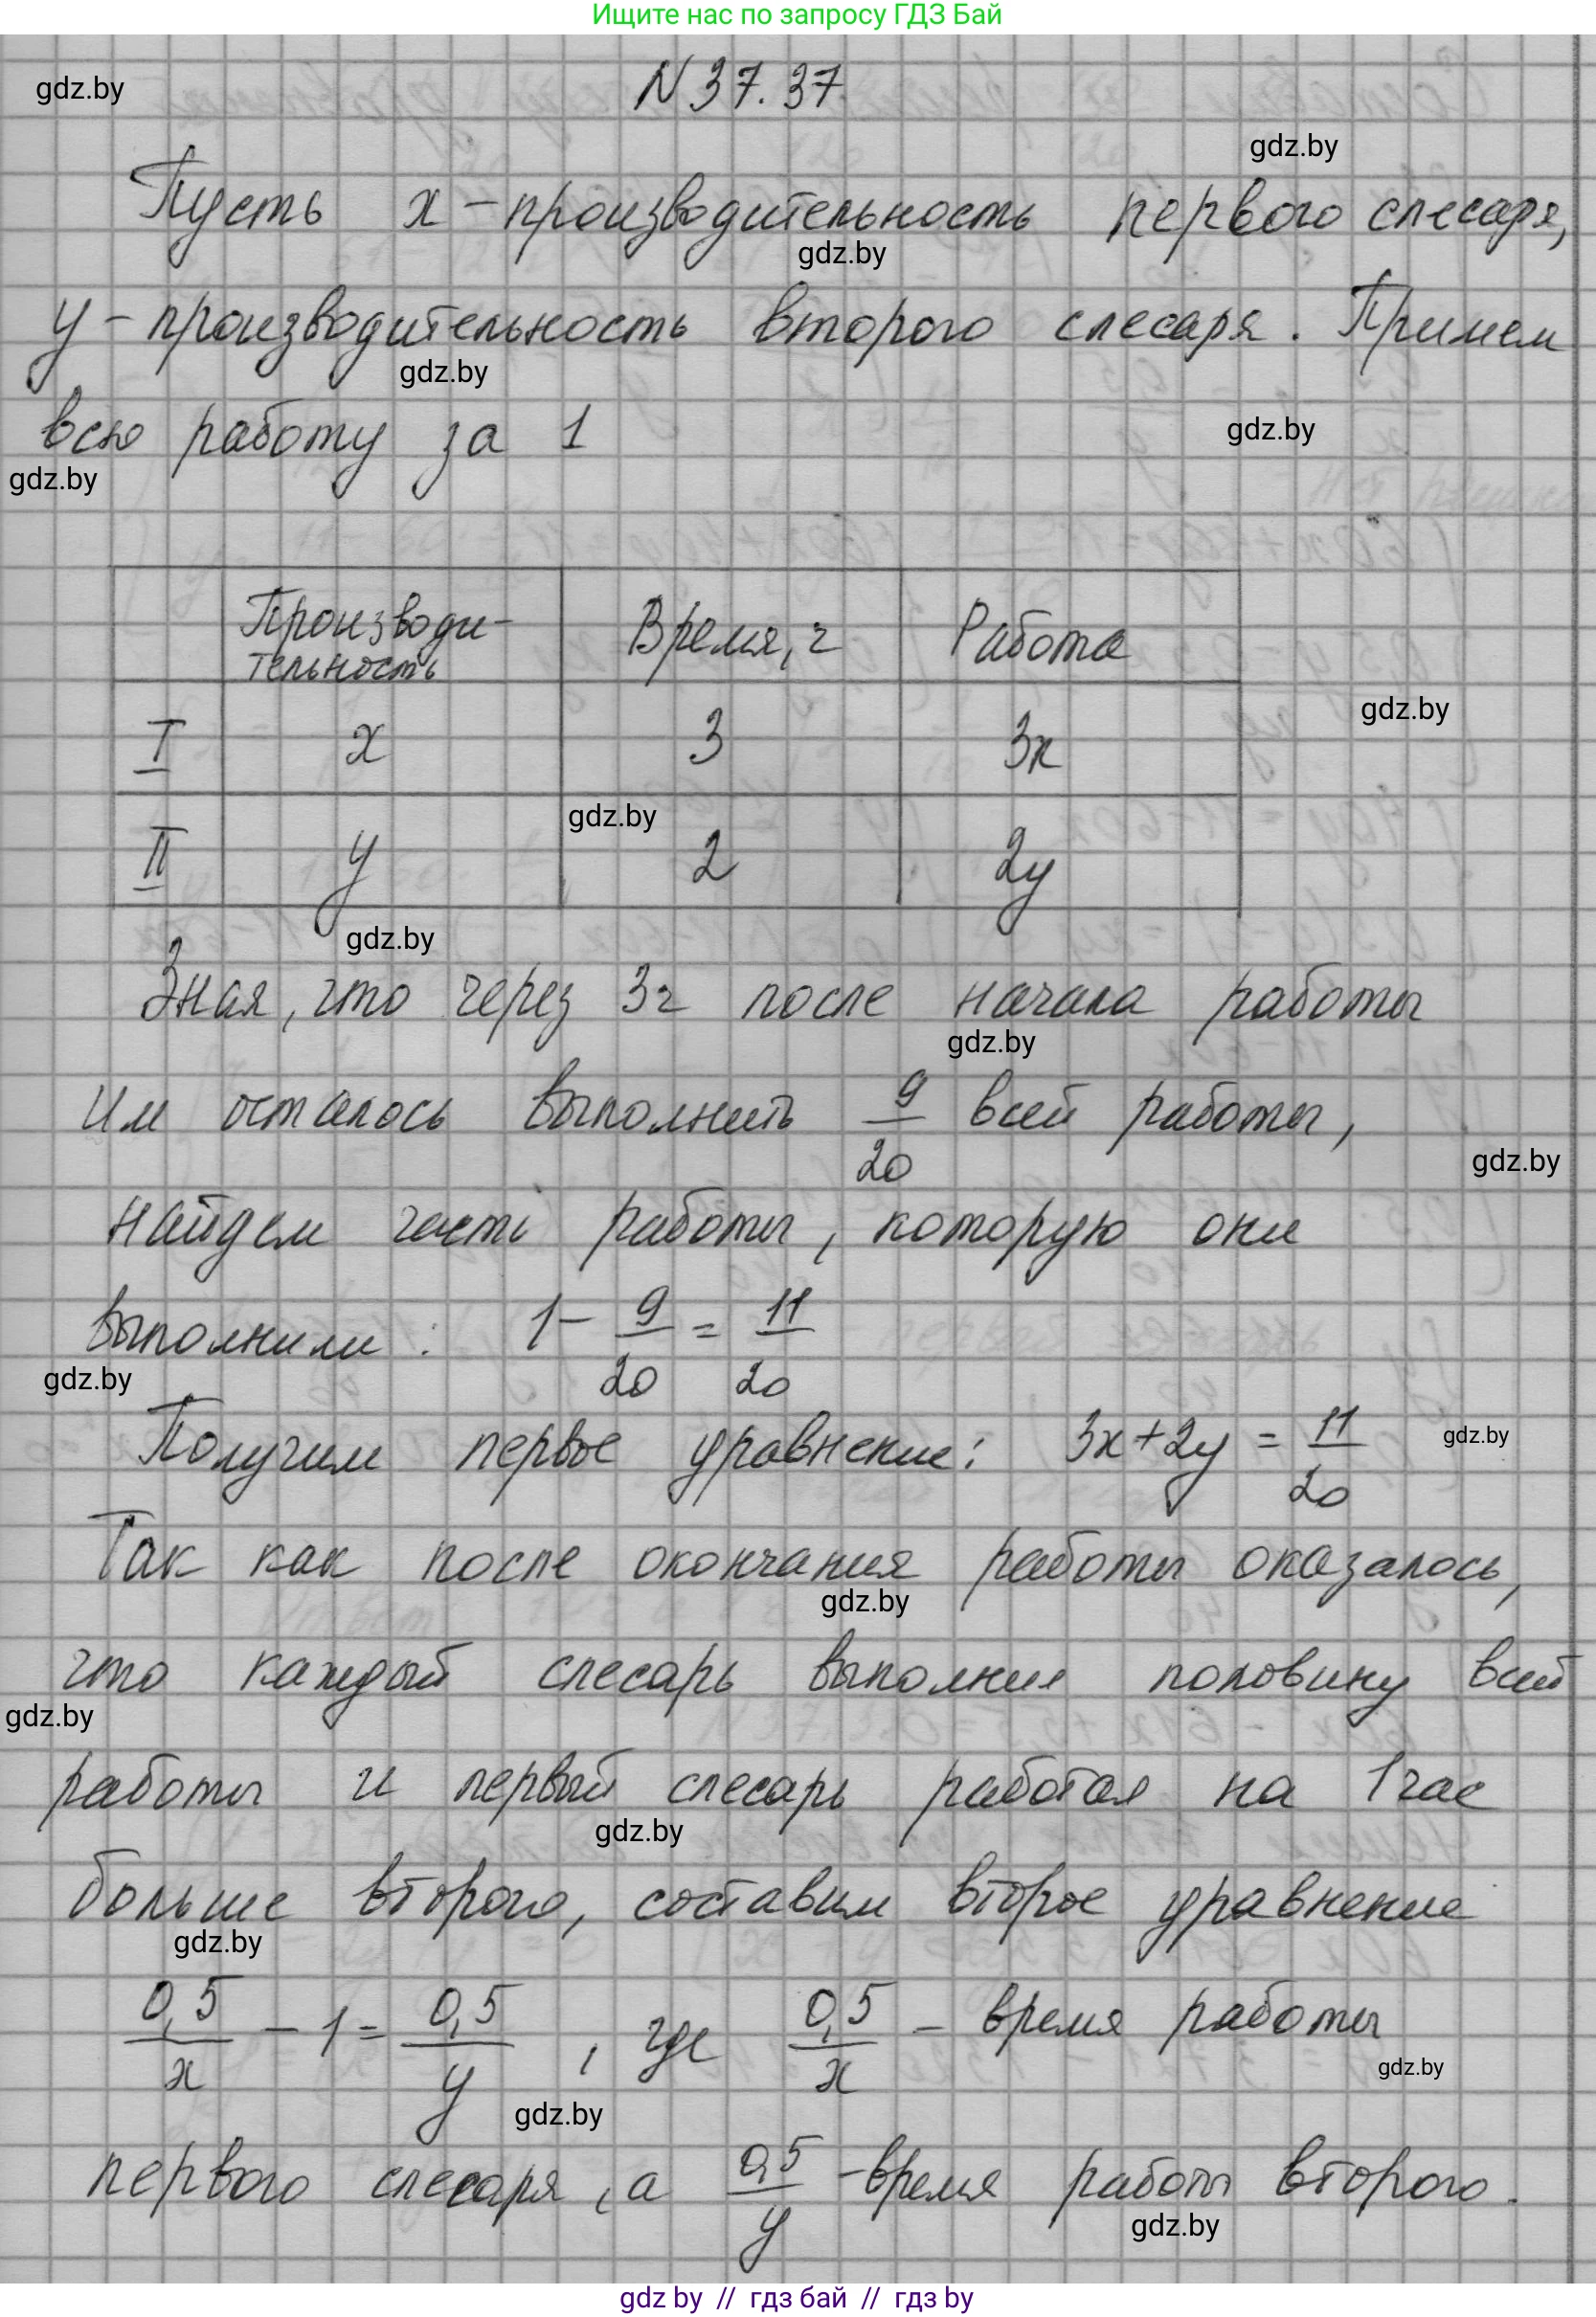 Ищите нас по запросу ГДЗ Бай
N 37.37
gdz.by
gdz.by
Пусть x - производительность первого слесаря,
gdz.by
y - производительность второго слесаря. Примем
gdz.by
всю работу за 1
gdz.by
gdz.by
Производи- Время, ч Работа
тельность
gdz.by
I x 3 3x
gdz.by
II y 2 2y
gdz.by
Зная, что через 3ч после начала работы
gdz.by
им осталось выполнить 9/20 всей работы,
gdz.by
найдем часть работы, которую они
выполнили: 1 - 9/20 = 11/20
gdz.by
Получим первое уравнение: 3x + 2y = 11/20
gdz.by
Так как после окончания работы оказалось,
gdz.by
что каждый слесарь выполнил половину всей
gdz.by
работы и первый слесарь работал на 1 час
gdz.by
больше второго, составим второе уравнение
gdz.by
0,5/x - 1 = 0,5/y , где 0,5/x - время работы
gdz.by
gdz.by
первого слесаря, а 0,5/y - время работы второго.
gdz.by
gdz by // гдз бай // gdz by